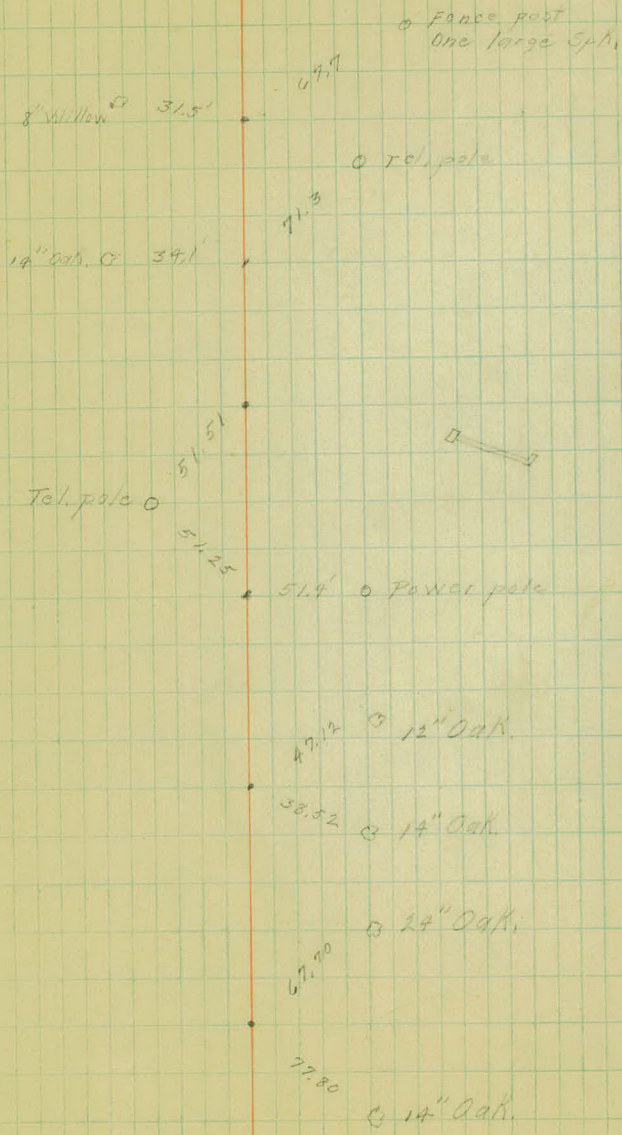 Fence post
One large Spk.
67.7
8" Willow 31.5'
Tel. pole
71.3
14" Oak. 34.1'
51' 51'
Tel. pole
51.25
51.4' Power pole
47.12 12" Oak.
38.52 14" Oak.
24" Oak.
67.70
77.80
14" Oak.